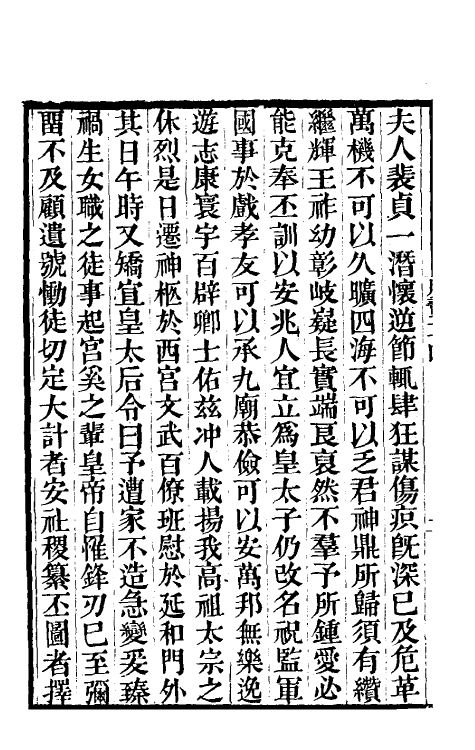 夫人裴貞一潛懷逆節輒肆狂謀傷疻旣深已及危革
萬機不可以久曠四海不可以乏君神鼎所歸須有纘
繼輝王祚幼彰岐嶷長實端良裒然不羣予所鍾愛必
能克奉丕訓以安兆人宜立爲皇太子仍改名祝監軍
國事於戲孝友可以承九廟恭儉可以安萬邦無樂逸
遊志康寰宇百辟卿士佑兹沖人載揚我高祖太宗之
休烈是日遷神柩於西宮文武百僚班慰於延和門外
其日午時又矯宣皇太后令曰予遭家不造急變爰臻
禍生女職之徒事起宮奚之輩皇帝自罹鋒刃已至彌
留不及顧遺號慟徒切定大計者安社稷纂丕圖者擇